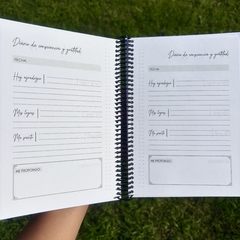 Diario de consciencia y gratitud
FECHA:
Hoy agradezco
Mis logros
Me siento
ME PROPONGO:
Diario de consciencia y gratitud
FECHA:
Hoy agradezco
Mis logros
Me siento
ME PROPONGO: